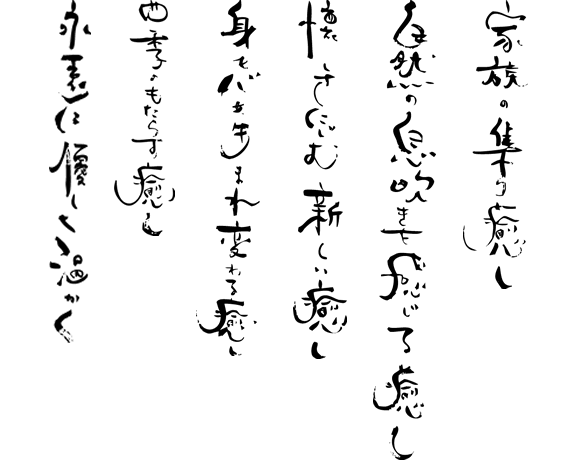 家族の集う癒し
自然の息吹きを感じる癒し
懐しさに和む新しい癒し
身も心も生まれ変わる癒し
四季のもたらす癒し
永遠に優しく温かく